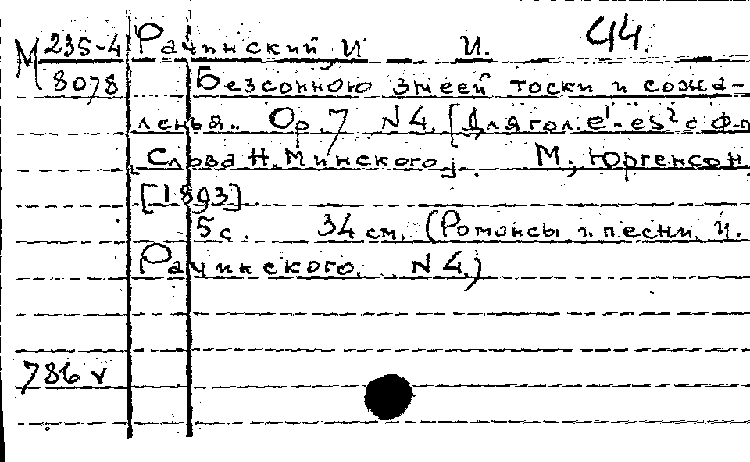 М 235-4 Рачинский, И. И. Ч4.
8078 Бессонною змеей тоски и сожа-
ленья. Op. 7 N 4. [Для гол. e¹-es² с ф-п
Слова Н. Минского]. М., Юргенсон,
[1893].
5 с. 34 см. (Романсы и песни И.
Рачинского. N 4.)
786 v